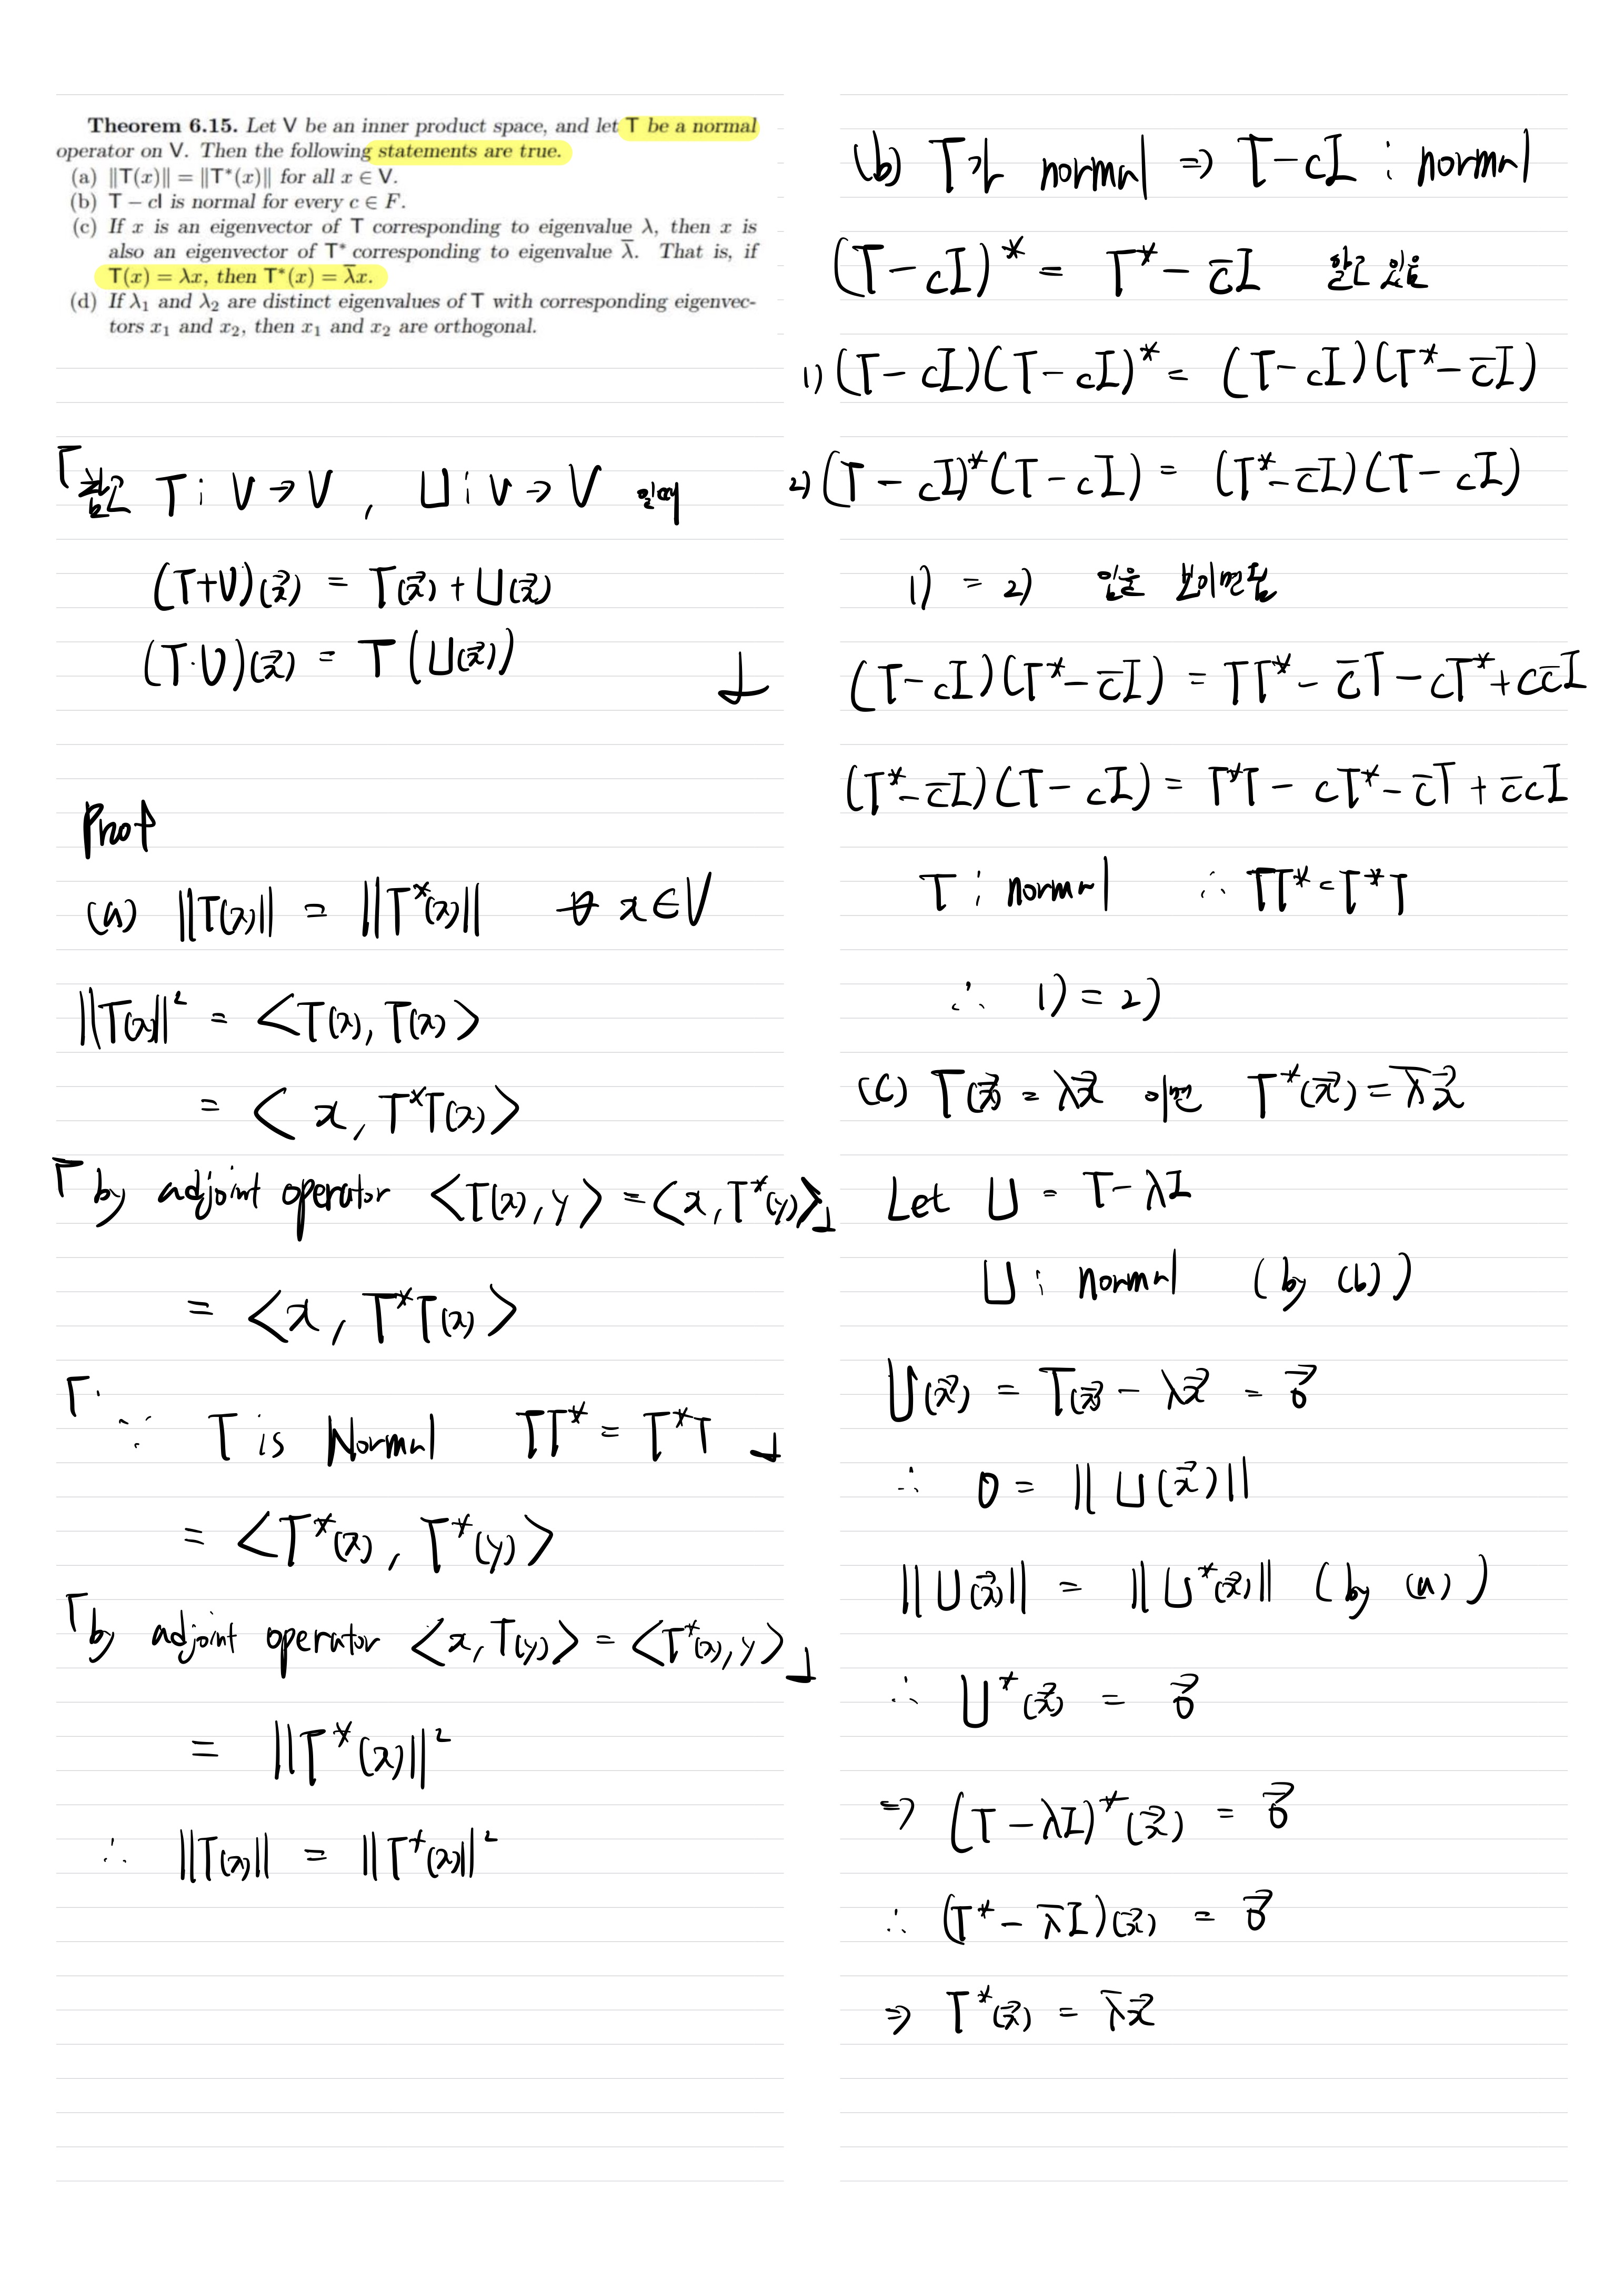 Theorem 6.15. Let V be an inner product space, and let T be a normal
operator on V. Then the following statements are true.
(a) ‖T(x)‖ = ‖T*(x)‖ for all x ∈ V.
(b) T − cI is normal for every c ∈ F.
(c) If x is an eigenvector of T corresponding to eigenvalue λ, then x is
also an eigenvector of T* corresponding to eigenvalue λ̄. That is, if
T(x) = λx, then T*(x) = λ̄x.
(d) If λ₁ and λ₂ are distinct eigenvalues of T with corresponding eigenvec-
tors x₁ and x₂, then x₁ and x₂ are orthogonal.
「 T : V → V , U : V → V 일때
(T+U)(x⃗) = T(x⃗) + U(x⃗)
(T·U)(x⃗) = T(U(x⃗)) 」
Proof
(a) ‖T(x)‖ = ‖T*(x)‖ ∀ x ∈ V
‖T(x)‖² = <T(x), T(x)>
= <x, T*T(x)>
「by adjoint operator <T(x), y> = <x, T*(y)>」
= <x, T*T(x)>
「∵ T is Normal TT* = T*T 」
= <T*(x), T*(y)>
「by adjoint operator <x, T(y)> = <T*(x), y>」
= ‖T*(x)‖²
∴ ‖T(x)‖ = ‖T*(x)‖²
(b) T가 normal ⇒ T−cI : normal
(T−cI)* = T* − c̄I 알고 있음
1) (T−cI)(T−cI)* = (T−cI)(T*−c̄I)
2) (T−cI)*(T−cI) = (T*−c̄I)(T−cI)
1) = 2) 임을 보이면됨
(T−cI)(T*−c̄I) = TT* − c̄T − cT* + cc̄I
(T*−c̄I)(T−cI) = T*T − cT* − c̄T + c̄cI
T : normal ∴ TT* = T*T
∴ 1) = 2)
(c) T(x⃗) = λx⃗ 이면 T*(x⃗) = λ̄x⃗
Let U = T−λI
U : normal (by (b))
U(x⃗) = T(x⃗) − λx⃗ = 0⃗
∴ 0 = ‖U(x⃗)‖
‖U(x⃗)‖ = ‖U*(x⃗)‖ (by (a))
∴ U*(x⃗) = 0⃗
⇒ (T−λI)*(x⃗) = 0⃗
∴ (T* − λ̄I)(x⃗) = 0⃗
⇒ T*(x⃗) = λ̄x⃗